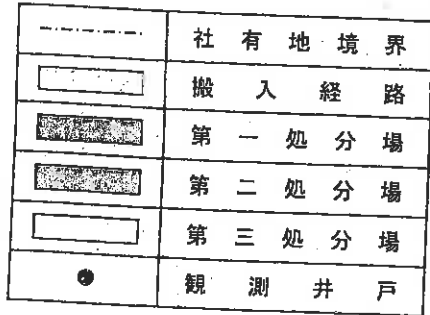 社有地境界
搬入経路
第一処分場
第二処分場
第三処分場
観測井戸